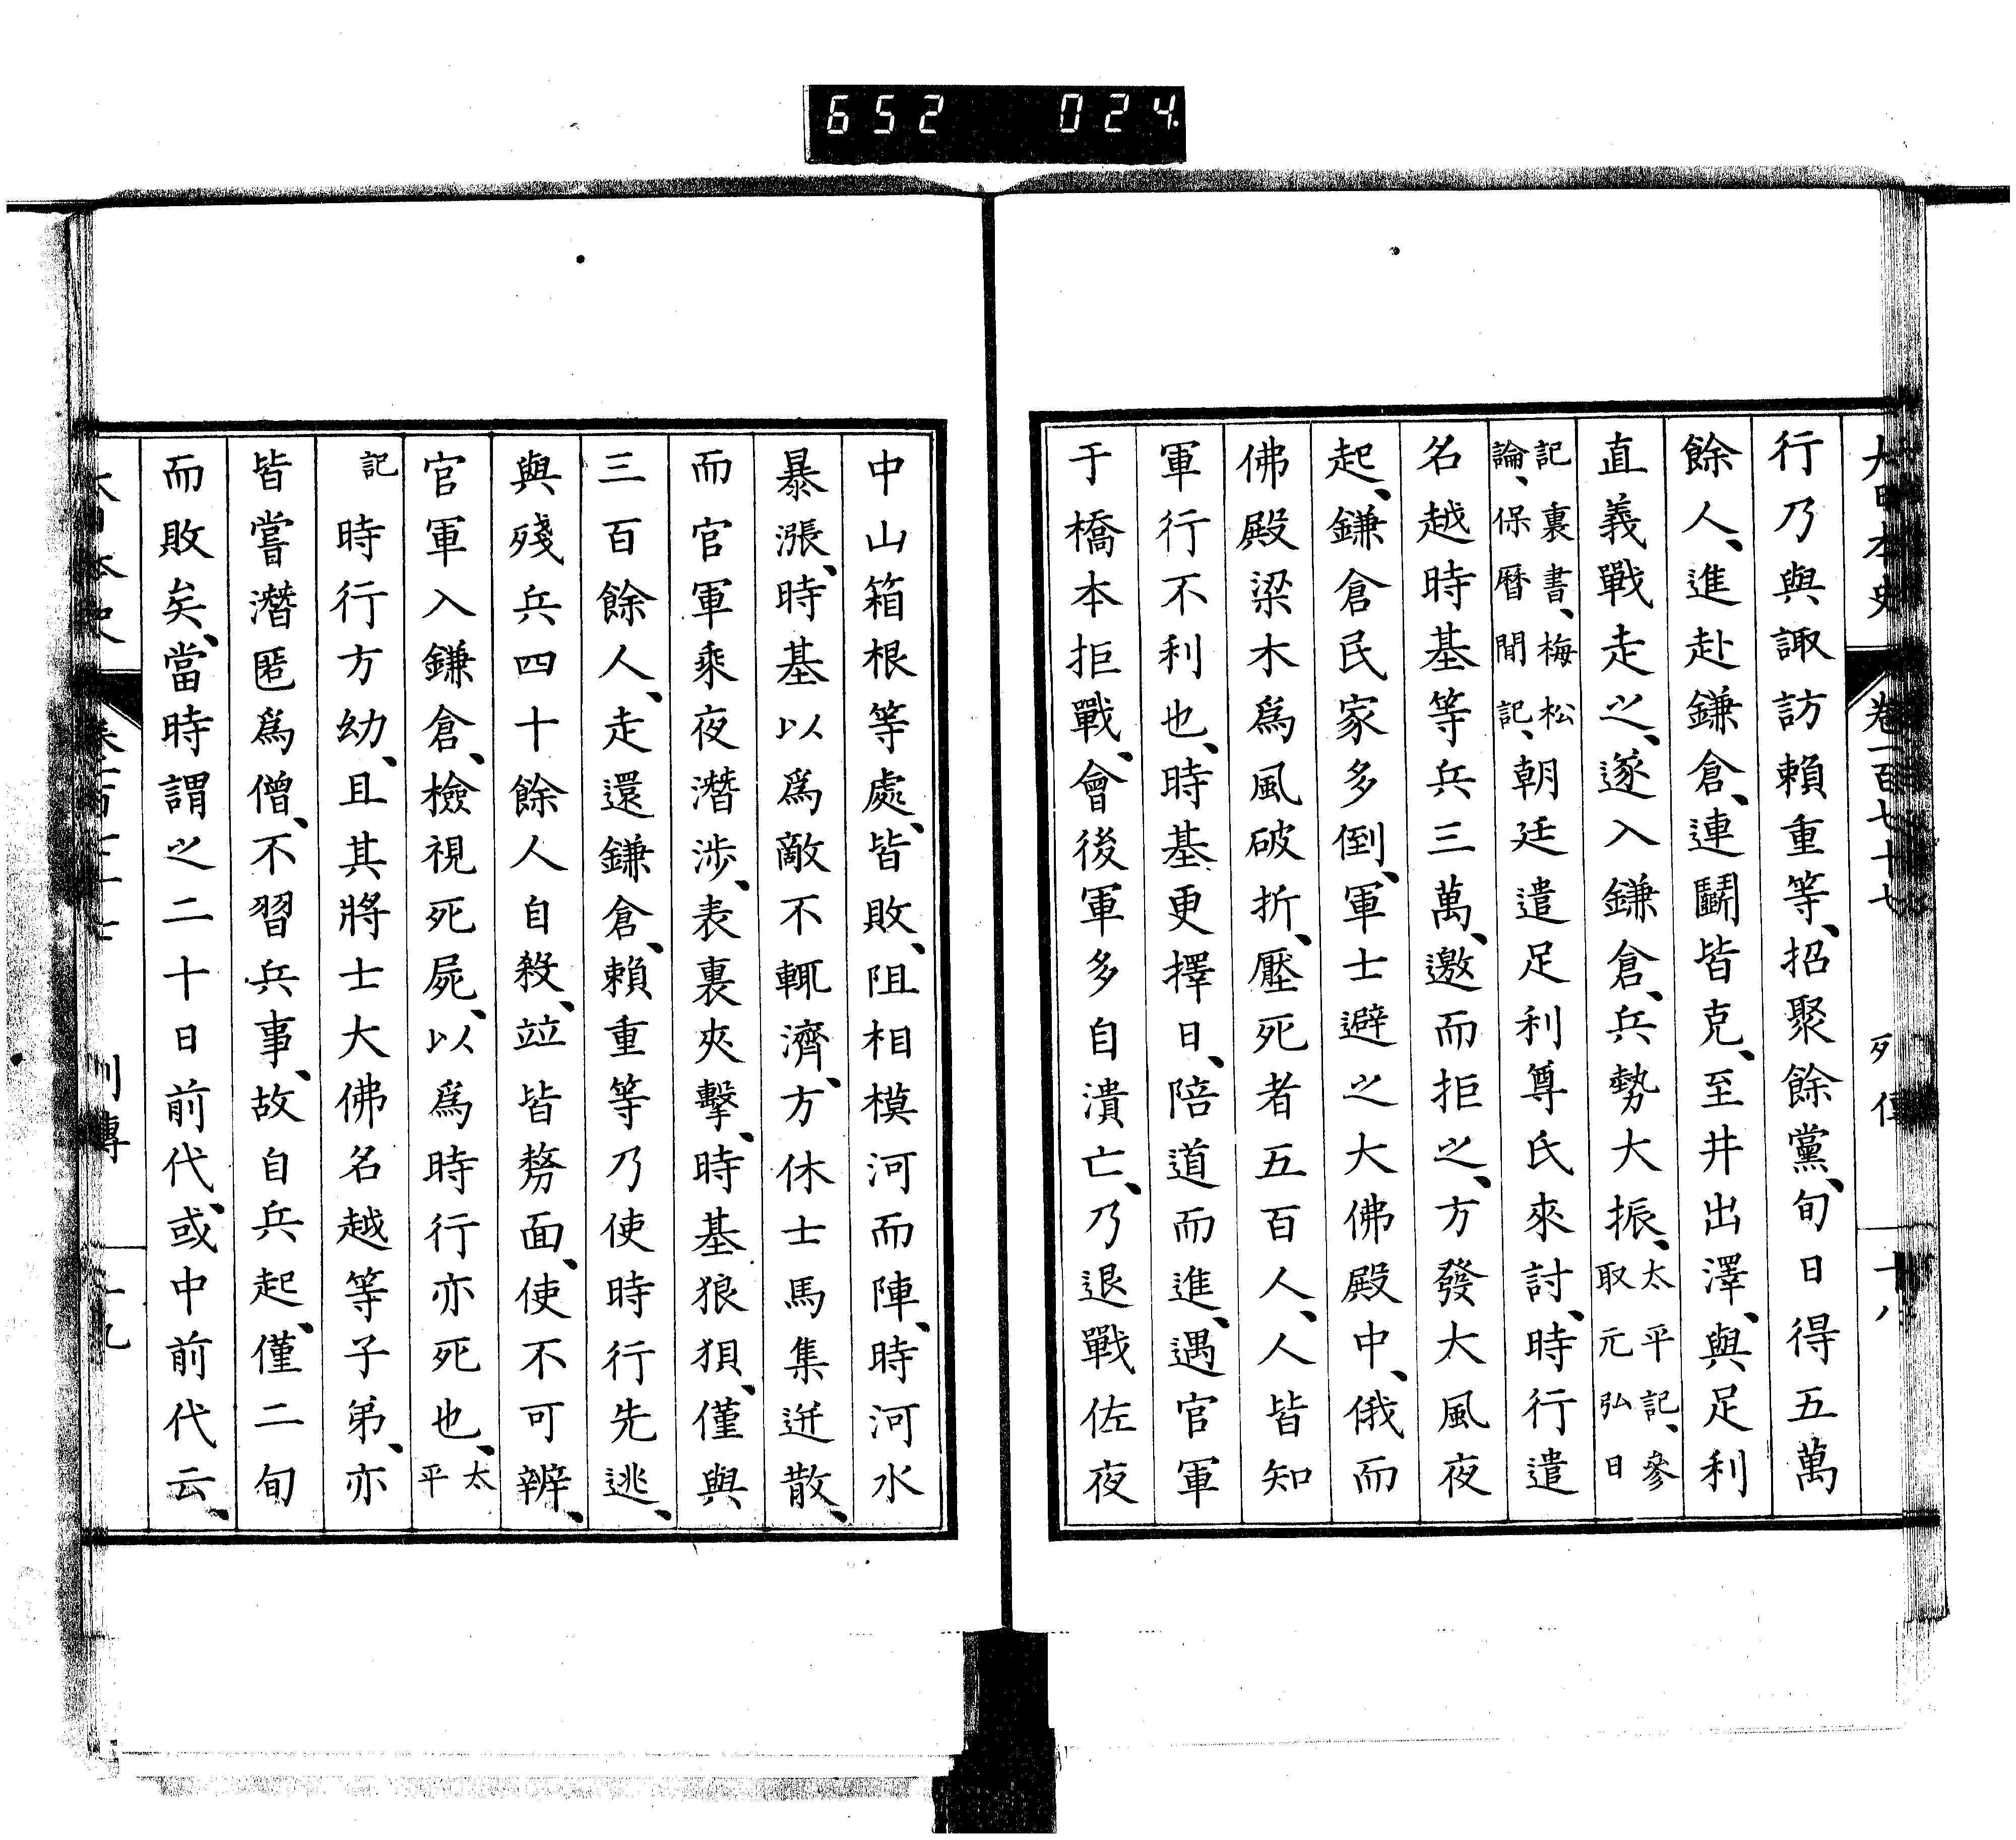 652 024.
大日本史 卷一百七十七 列傳 十八
行乃與諏訪賴重等、招聚餘黨、旬日得五萬
餘人、進赴鎌倉、連鬭皆克、至井出澤、與足利
直義戰走之、遂入鎌倉、兵勢大振、太平記、參取元弘日
記裏書、梅松論、保曆間記、朝廷遣足利尊氏來討、時行遣
名越時基等兵三萬、邀而拒之、方發大風夜
起、鎌倉民家多倒、軍士避之大佛殿中、俄而
佛殿梁木爲風破折、壓死者五百人、人皆知
軍行不利也、時基更擇日、陪道而進、遇官軍
于橋本拒戰、會後軍多自潰亡、乃退戰佐夜
中山箱根等處、皆敗、阻相模河而陣、時河水
暴漲、時基以爲敵不輒濟、方休士馬集迸散、
而官軍乘夜潛涉、表裏夾擊、時基狼狽、僅與
三百餘人、走還鎌倉、賴重等乃使時行先逃、
與殘兵四十餘人自殺、竝皆剺面、使不可辨、
官軍入鎌倉、檢視死屍、以爲時行亦死也、太平
記時行方幼、且其將士大佛名越等子弟、亦
皆嘗潛匿爲僧、不習兵事、故自兵起、僅二旬
而敗矣、當時謂之二十日前代、或中前代云、